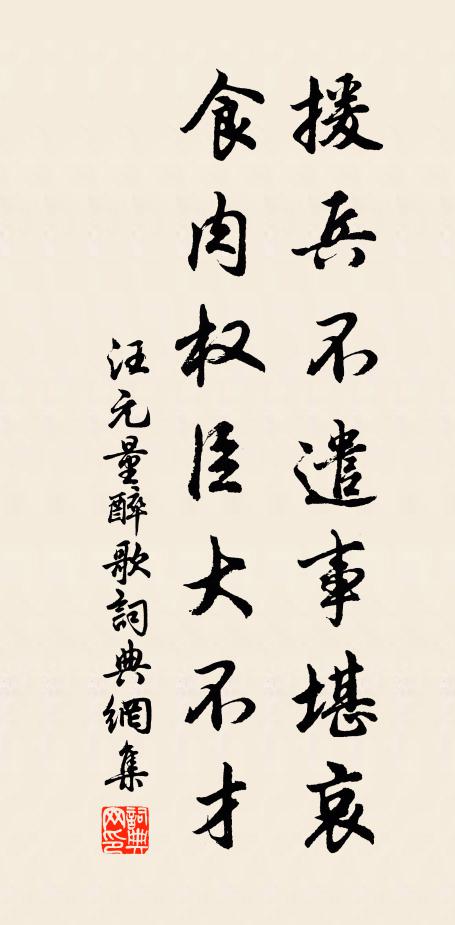 援兵不遣事堪哀
食肉权臣大不才
汪元量醉歌詞典網集
詞典网印